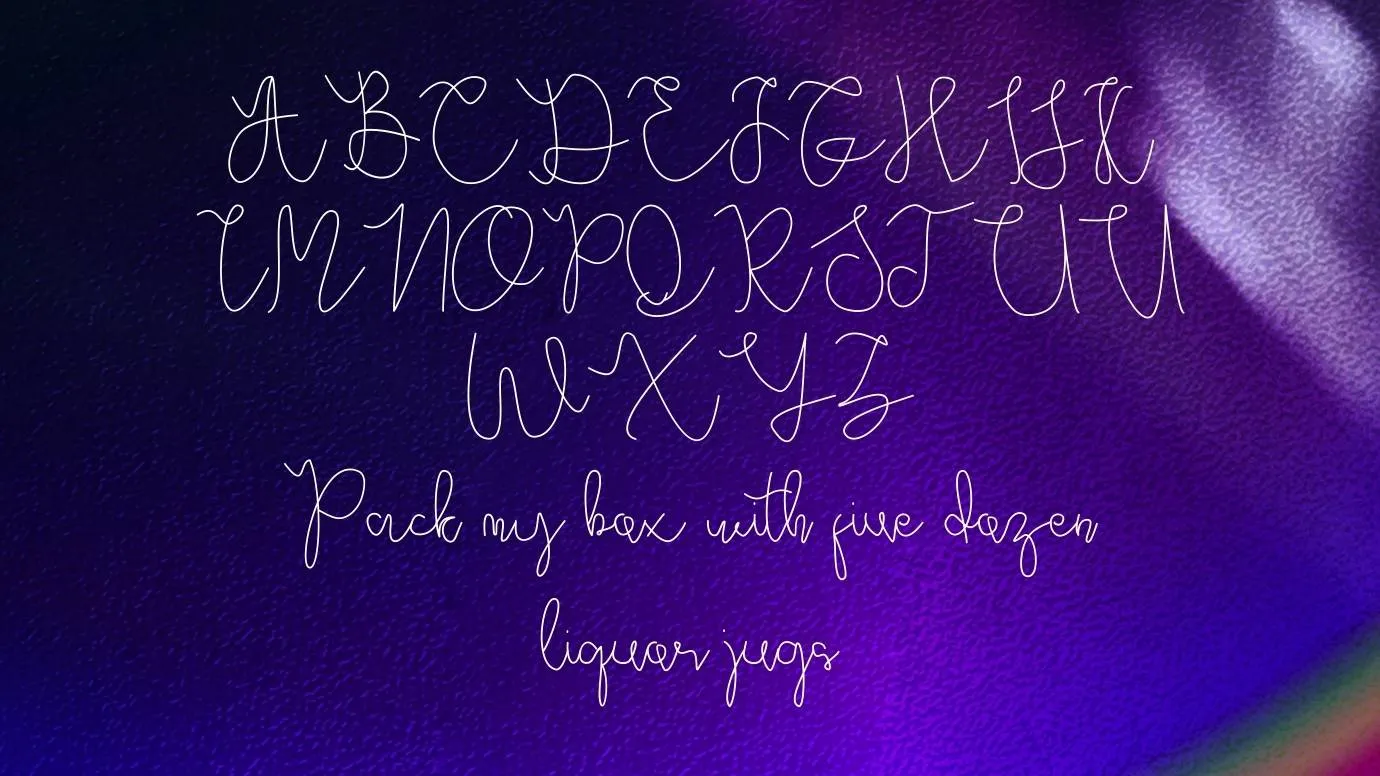 A B C D E F G H I J K
L M N O P Q R S T U V
W X Y Z
Pack my box with five dozen
liquor jugs